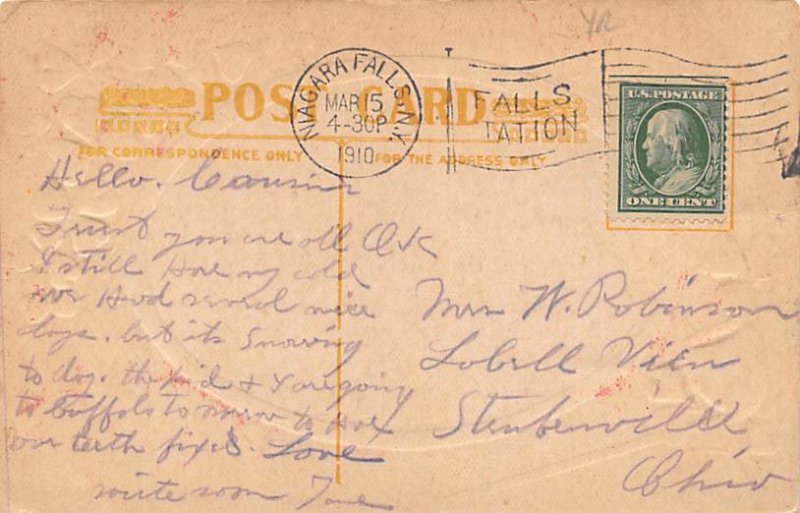 YR
NIAGARA FALLS, N.Y.
MAR 15
4-30P
1910
FALLS
TATION
U.S. POSTAGE
ONE CENT
POST CARD
FOR CORRESPONDENCE ONLY
FOR THE ADDRESS ONLY
Hello. Cousins
Trust you are all O K
I still Have my cold
we Had several nice
days. but its Snowing
to day. the kid & I are going
to buffalo to morrow to Have
our teeth fixed. Love
write soon
Mrs W. Robinson
Lobell View
Steubenville
Ohio